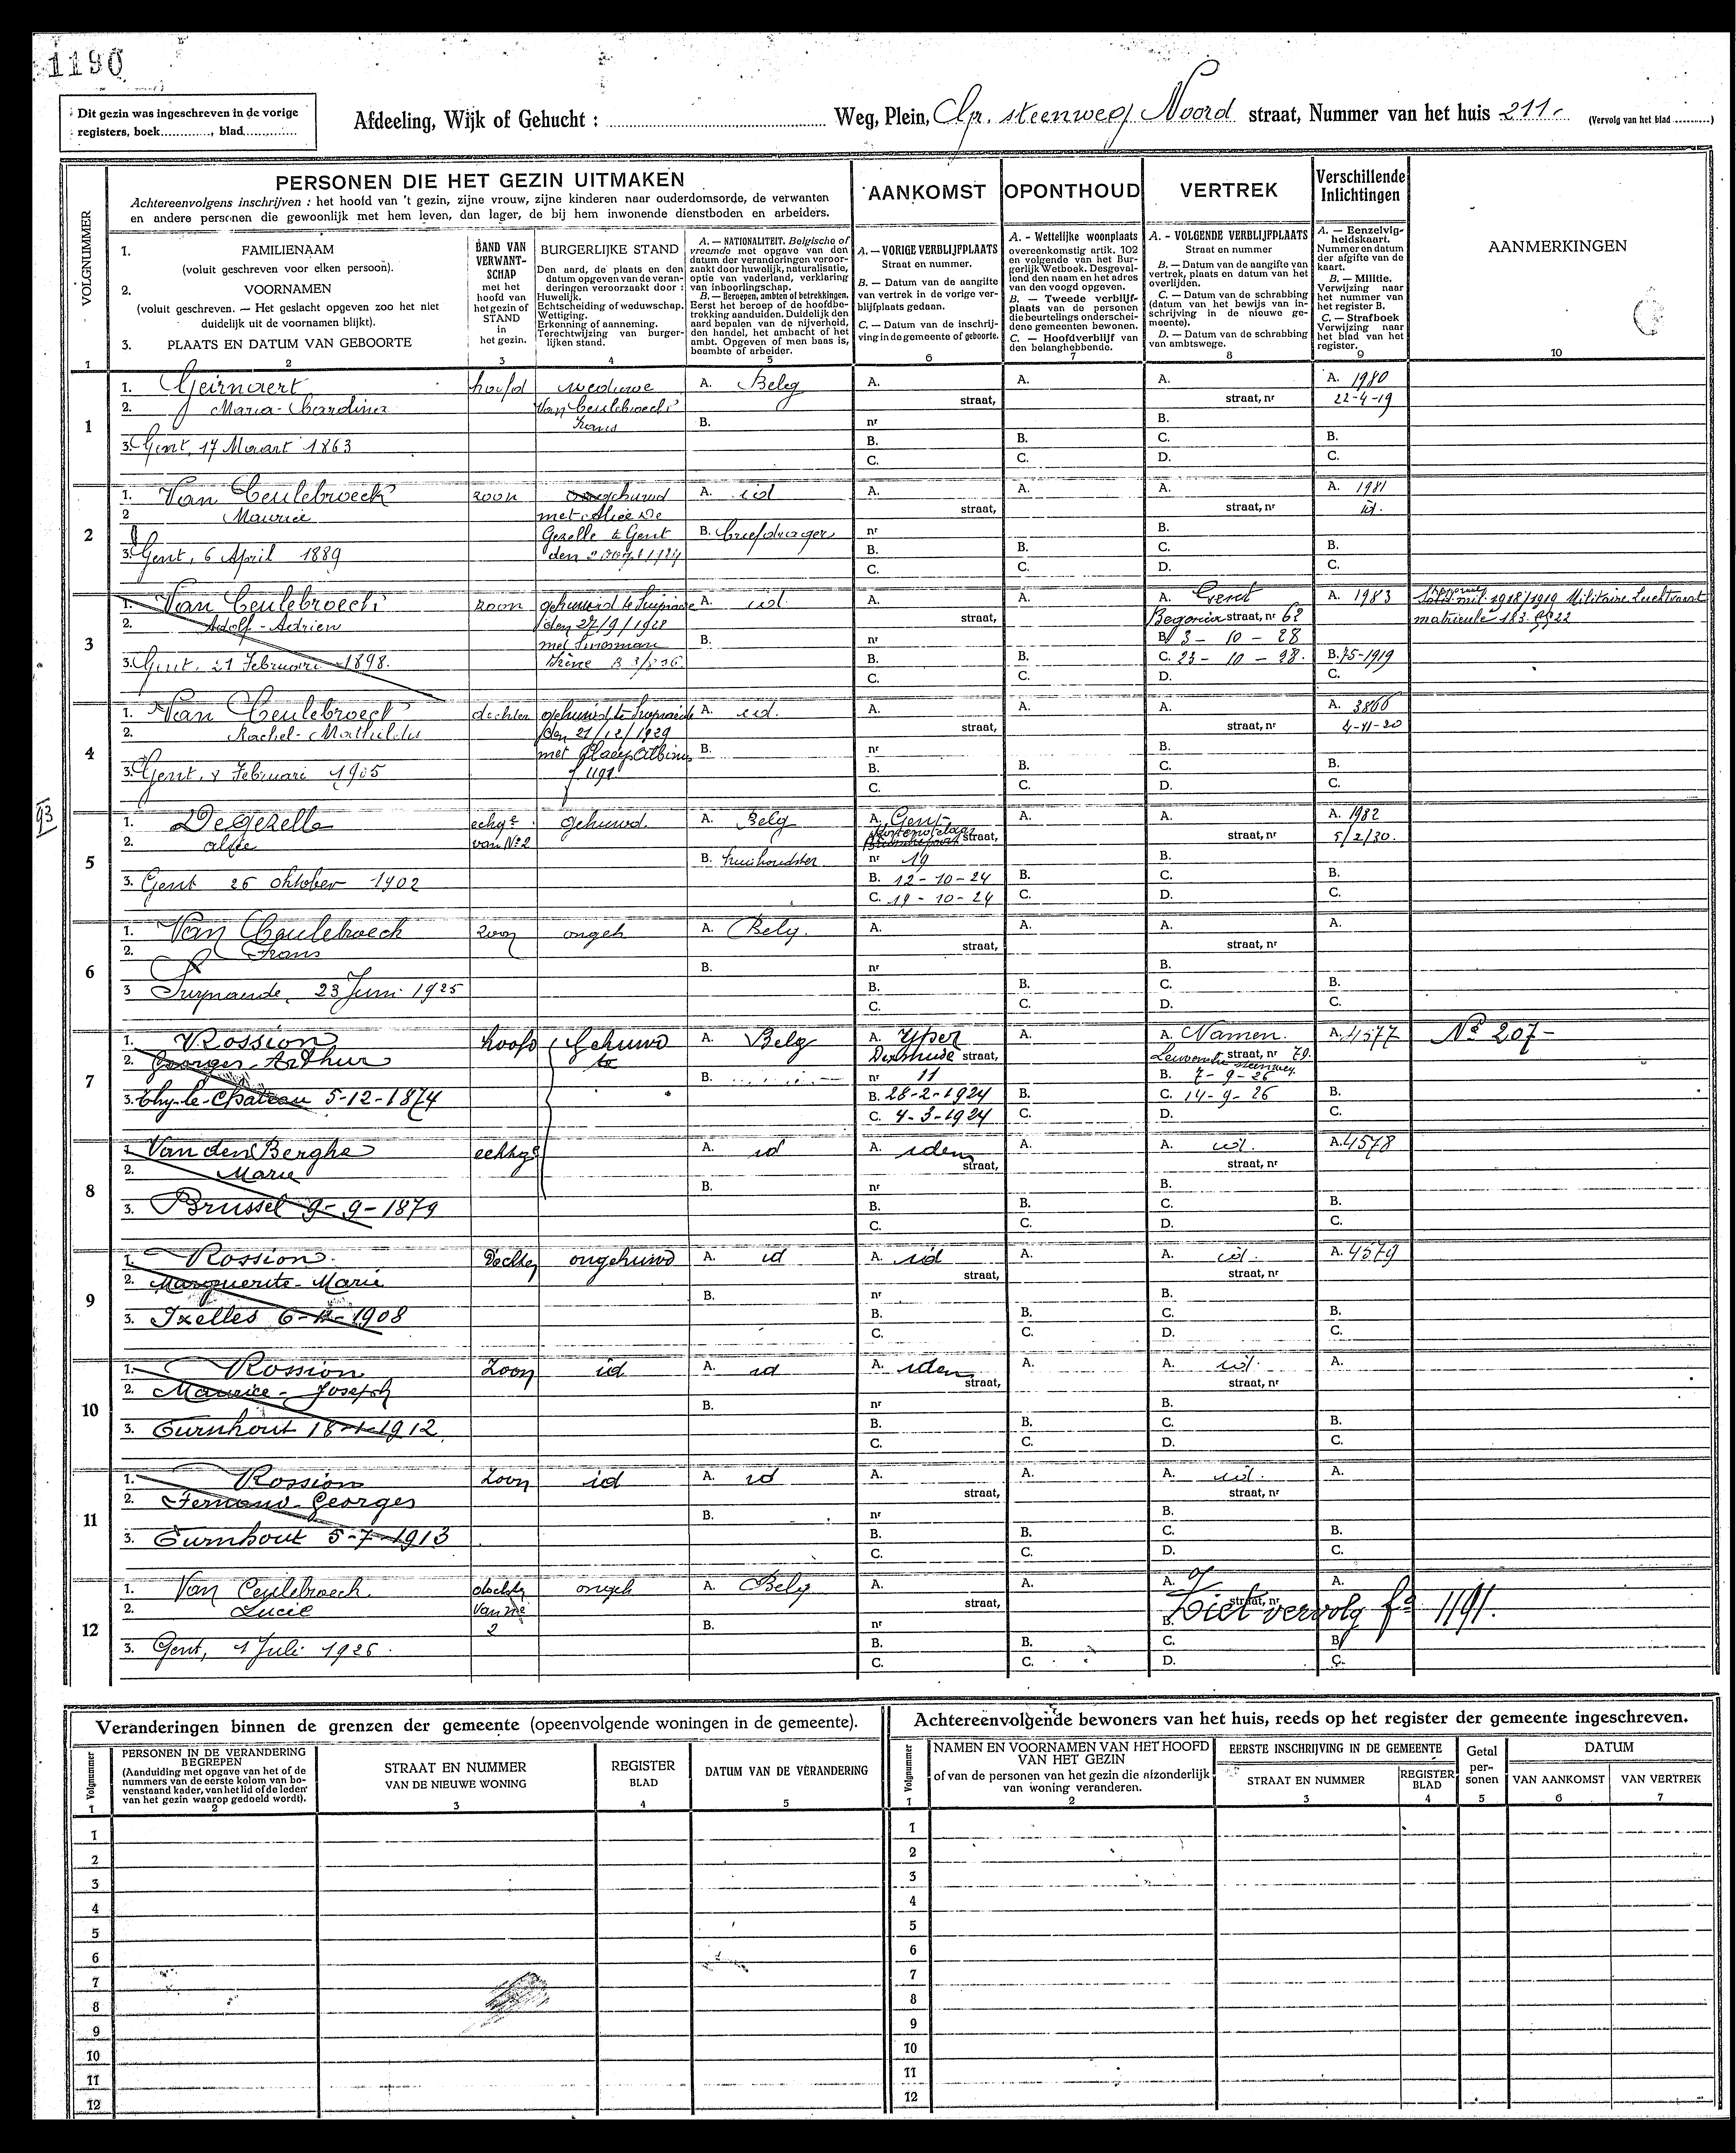 1190
Dit gezin was ingeschreven in de vorige
registers, boek............, blad............
Afdeeling, Wijk of Gehucht : Weg, Plein, steenweg Noord straat, Nummer van het huis 211.- (Vervolg van het blad ..........)
PERSONEN DIE HET GEZIN UITMAKEN
Achtereenvolgens inschrijven : het hoofd van 't gezin, zijne vrouw, zijne kinderen naar ouderdomsorde, de verwanten
en andere personen die gewoonlijk met hem leven, dan lager, de bij hem inwonende dienstboden en arbeiders.
AANKOMST
OPONTHOUD
VERTREK
Verschillende
Inlichtingen
VOLGNUMMER
1. FAMILIENAAM
(voluit geschreven voor elken persoon).
2. VOORNAMEN
(voluit geschreven. — Het geslacht opgeven zoo het niet
duidelijk uit de voornamen blijkt).
3. PLAATS EN DATUM VAN GEBOORTE
BAND VAN
VERWANT-
SCHAP
met het
hoofd van
het gezin of
STAND
in
het gezin.
BURGERLIJKE STAND
Den aard, de plaats en den
datum opgeven van de veran-
deringen veroorzaakt door :
Huwelijk.
Echtscheiding of weduwschap.
Wettiging.
Erkenning of aanneming.
Terechtwijzing van burger-
lijken stand.
A. — NATIONALITEIT. Belgische of
vreemde met opgave van den
datum der veranderingen veroor-
zaakt door huwelijk, naturalisatie,
optie van vaderland, verklaring
van inboorlingschap.
B. — Beroepen, ambten of betrekkingen.
Eerst het beroep of de hoofdbe-
trekking aanduiden. Duidelijk den
aard bepalen van de nijverheid,
den handel, het ambacht of het
ambt. Opgeven of men baas is,
beambte of arbeider.
A. — VORIGE VERBLIJFPLAATS
Straat en nummer.
B. — Datum van de aangifte
van vertrek in de vorige ver-
blijfplaats gedaan.
C. — Datum van de inschrij-
ving in de gemeente of geboorte.
A. - Wettelijke woonplaats
overeenkomstig artik. 102
en volgende van het Bur-
gerlijk Wetboek. Desgeval-
lend den naam en het adres
van den voogd opgeven.
B. — Tweede verblijf-
plaats van de personen
die beurtelings onderschei-
dene gemeenten bewonen.
C. — Hoofdverblijf van
den belanghebbende.
A. - VOLGENDE VERBLIJFPLAATS
Straat en nummer
B. — Datum van de aangifte van
vertrek, plaats en datum van het
overlijden.
C. — Datum van de schrabbing
(datum van het bewijs van in-
schrijving in de nieuwe ge-
meente).
D. — Datum van de schrabbing
van ambtswege.
A. — Eenzelvig-
heidskaart.
Nummer en datum
der afgifte van de
kaart.
B. — Militie.
Verwijzing naar
het nummer van
het register B.
C. — Strafboek
Verwijzing naar
het blad van het
register.
AANMERKINGEN
1 2 3 4 5 6 7 8 9 10
1
1. Geirnaert hoofd weduwe A. Belg A. A. A. A. 1980
2. Maria-Carolina Van Ceulebroeck straat, straat, nr 22-4-19
Frans B. nr B.
3. Gent, 17 Maart 1863 B. B. C. B.
C. C. D. C.
2
1. Van Ceulebroeck zoon gehuwd A. id A. A. A. A. 1981
2 Maurice met Alice De straat, straat, nr id.
Gezelle te Gent B. briefdrager nr B.
3. Gent, 6 April 1889 den B. B. C. B.
C. C. D. C.
3
1. Van Ceulebroeck zoon gehuwd te A. id. A. A. A. Gent A. 1983 1918/1919 Militaire Luchtvaart
2. Adolf-Adrien den 27/9/1928 straat, Begonia straat, nr 62 matricule 183.
met B. nr B. 3 - 10 - 28
3. Gent, 21 Februari 1898. Irène B. B. C. 23 - 10 - 28. B. 75-1919
C. C. D. C.
4
1. Van Ceulebroeck dochter gehuwd te A. id. A. A. A. A. 3866
2. Rachel-Mathilde den 21/12/1929 straat, straat, nr 4-11-20
met B. nr B.
3. Gent, 8 Februari 1905 f 1191 B. B. C. B.
C. C. D. C.
93
5
1. De Gezelle echtge gehuwd. A. Belg A. Gent A. A. A. 1982
2. Alice van N° 2 straat, straat, nr 5/2/30.
B. huishoudster nr 19 B.
3. Gent 26 oktober 1902 B. 12-10-24 B. C. B.
C. 19-10-24 C. D. C.
6
1. Van Ceulebroeck zoon ongeh A. Belg. A. A. A. A.
2. Frans straat, straat, nr
B. nr B.
3 23 Juni 1925 B. B. C. B.
C. C. D. C.
7
1. Rossion hoofd Gehuwd A. Belg A. Yper A. A. Namen. A. 4577 N° 207-
2. Georges-Arthur te Dixmude straat, straat, nr 79.
B. nr 11 B. 7-9-26
3. Thy-le-Château 5-12-1874 B. 28-2-1924 B. C. 14-9-26 B.
C. 4-3-1924 C. D. C.
8
1. Van den Berghe echtge A. id A. idem A. A. id. A. 4578
2. Marie straat, straat, nr
B. nr B.
3. Brussel 9-9-1879 B. B. C. B.
C. C. D. C.
9
1. Rossion. Dochter ongehuwd A. id A. id A. A. id. A. 4579
2. Marguerite-Marie straat, straat, nr
B. nr B.
3. Ixelles 6- -1908 B. B. C. B.
C. C. D. C.
10
1. Rossion Zoon id A. id A. idem A. A. id. A.
2. Maurice-Joseph straat, straat, nr
B. nr B.
3. Turnhout 18-1-1912 B. B. C. B.
C. C. D. C.
11
1. Rossion Zoon id A. id A. A. A. id. A.
2. Fernand-Georges straat, straat, nr
B. nr B.
3. Turnhout 5-7-1913 B. B. C. B.
C. C. D. C.
12
1. Van Ceulebroeck dochter ongeh A. Belg A. A. A. A.
2. Lucie van straat, straat, nr Ziet vervolg f° 1191.
2 B. nr B.
3. Gent, 1 Juli 1926. B. B. C. B
C. C. D. C.
Veranderingen binnen de grenzen der gemeente (opeenvolgende woningen in de gemeente).
Volgnummer
PERSONEN IN DE VERANDERING
BEGREPEN
(Aanduiding met opgave van het of de
nummers van de eerste kolom van bo-
venstaand kader, van het lid of de leden
van het gezin waarop gedoeld wordt).
STRAAT EN NUMMER
VAN DE NIEUWE WONING
REGISTER
BLAD
DATUM VAN DE VERANDERING
1 2 3 4 5
1
2
3
4
5
6
7
8
9
10
11
12
Achtereenvolgende bewoners van het huis, reeds op het register der gemeente ingeschreven.
Volgnummer
NAMEN EN VOORNAMEN VAN HET HOOFD
VAN HET GEZIN
of van de personen van het gezin die afzonderlijk
van woning veranderen.
EERSTE INSCHRIJVING IN DE GEMEENTE
STRAAT EN NUMMER
REGISTER
BLAD
Getal
per-
sonen
DATUM
VAN AANKOMST
VAN VERTREK
1 2 3 4 5 6 7
1
2
3
4
5
6
7
8
9
10
11
12